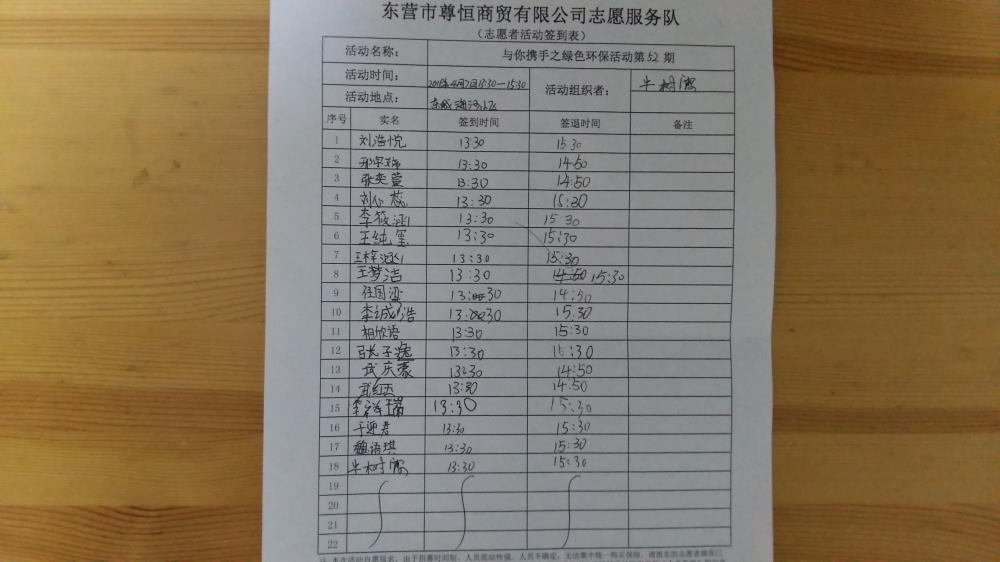 东营市尊恒商贸有限公司志愿服务队
（志愿者活动签到表）
活动名称： 与你携手之绿色环保活动第52期
活动时间： 13:30—15:30 活动组织者： 牛树儒
活动地点：
序号 实名 签到时间 签退时间 备注
1 刘浩悦 13:30 15:30
2 13:30 14:50
3 张奕萱 13:30 14:50
4 刘心蕊 13:30 15:30
5 李筱涵 13:30 15:30
6 王纯玺 13:30 15:30
7 王梓涵 13:30 15:30
8 王梦洁 13:30 14:50 15:30
9 任国梁 13:30 14:50
10 李诚浩 13:30 15:30
11 相欣语 13:30 15:30
12 张子逸 13:30 15:30
13 武庆蒙 13:30 14:50
14 13:30 14:50
15 李祥瑞 13:30 15:30
16 于迎春 13:30 15:30
17 魏语琪 13:30 15:30
18 牛树儒 13:30 15:30
19
20
21
22